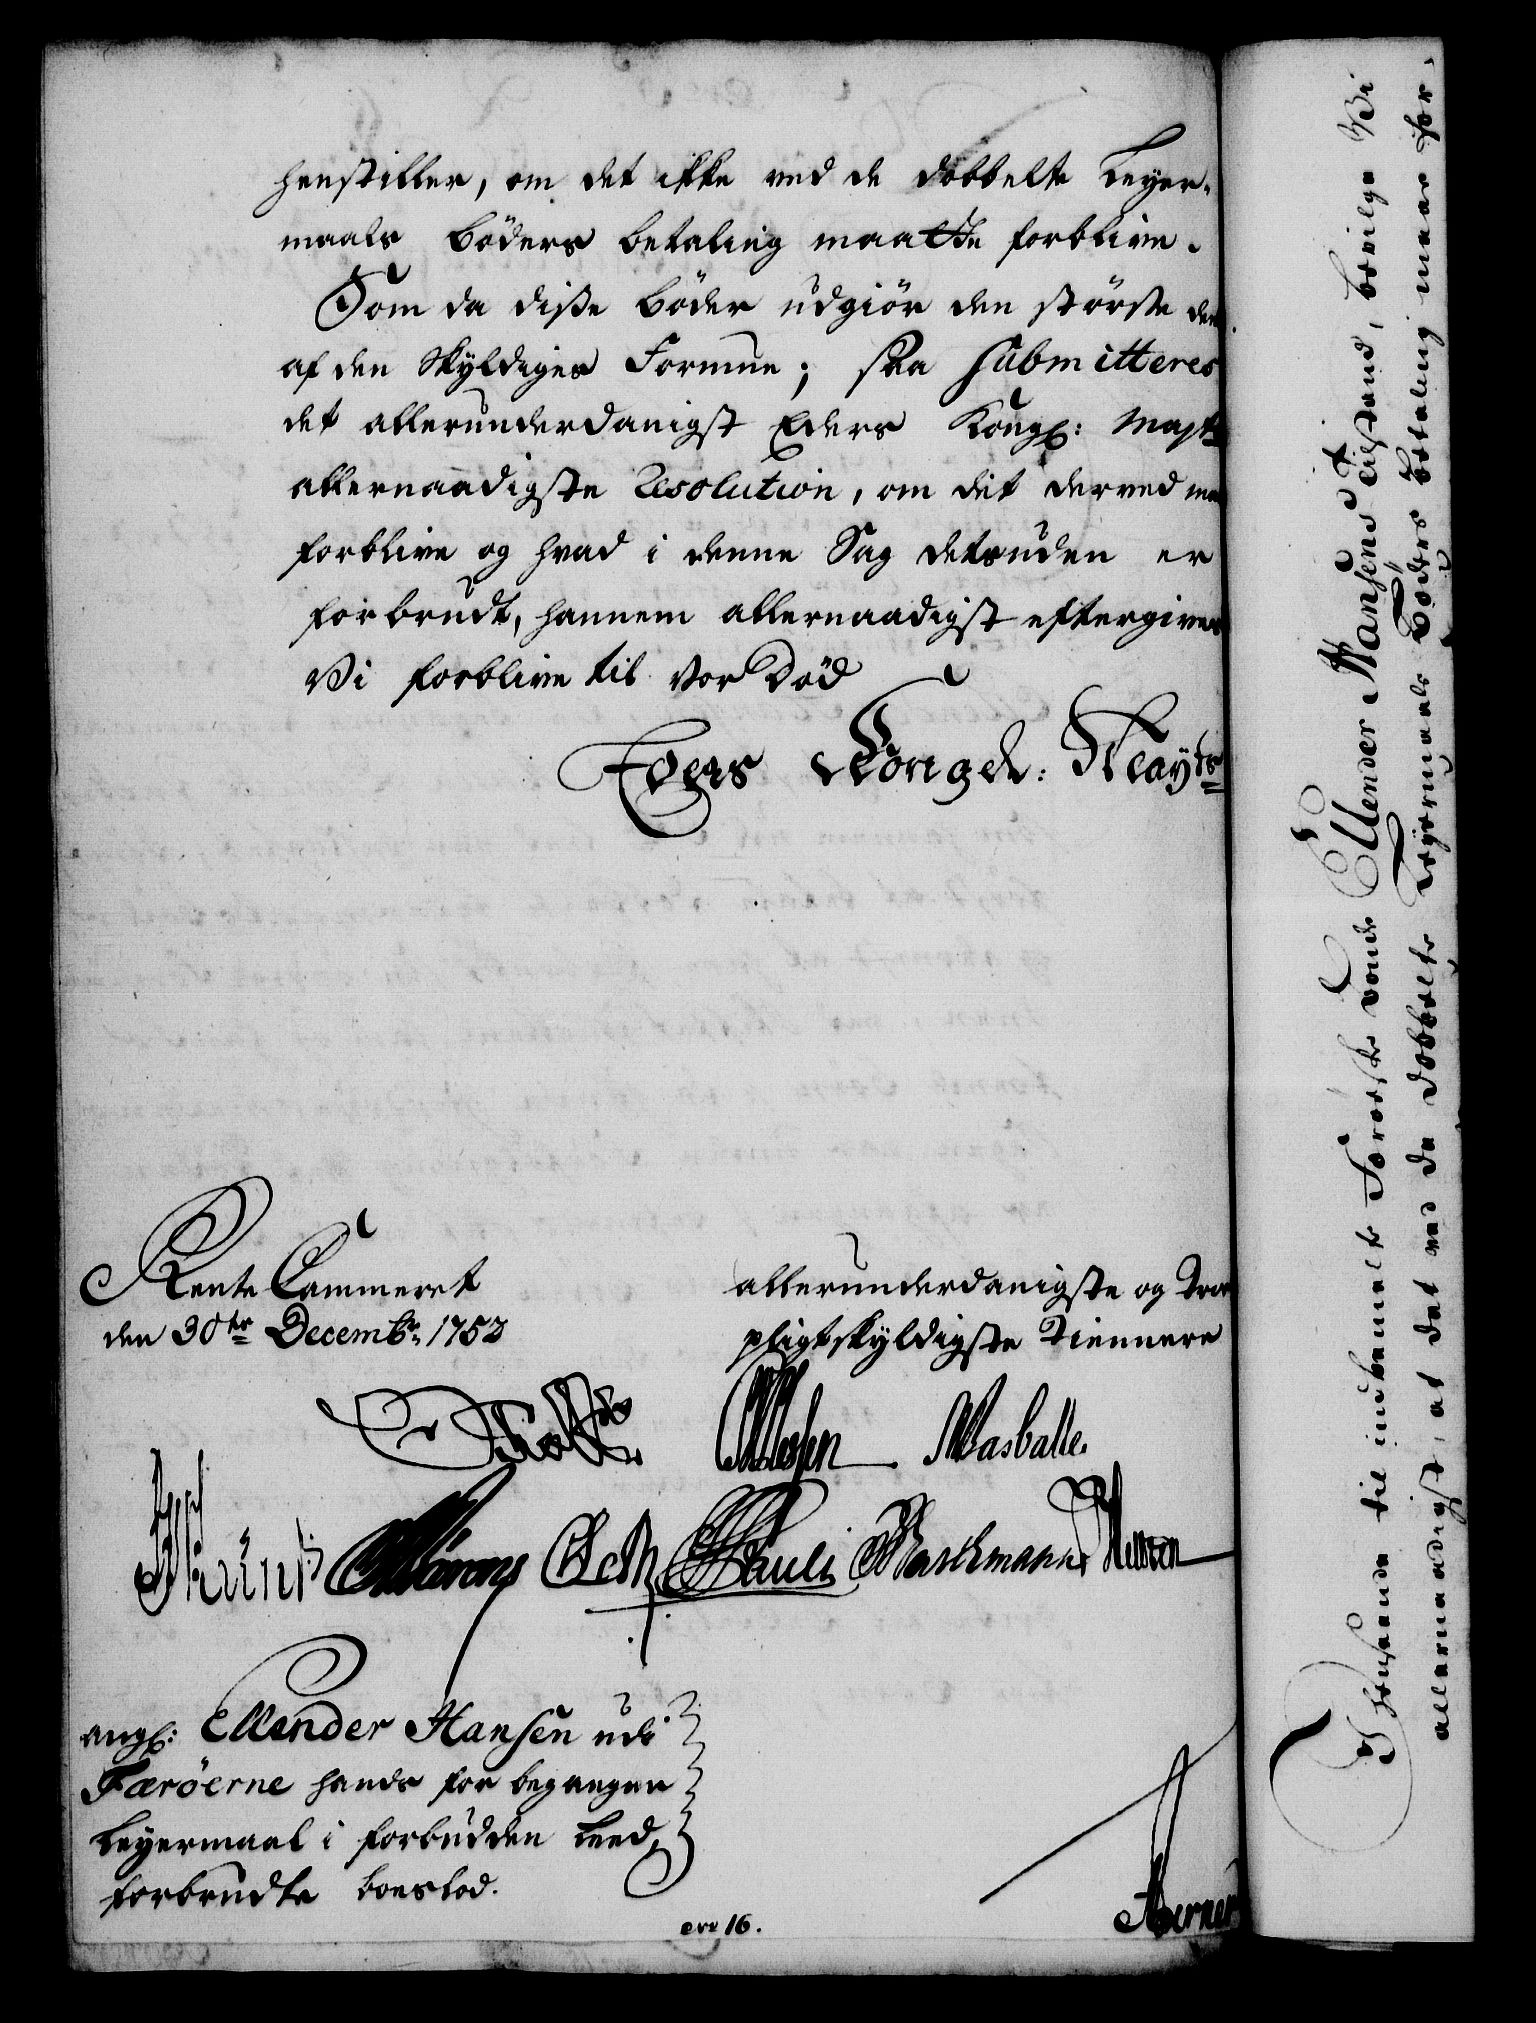 henstiller, om det ikke ved de dobbelte Leyer-
maalsBöders betaling maatte forblive.
Som da diße Böder udgiör den störste deel
af den Skyldiges Formue; saa submitteres
det allerunderdanigst Eders Kongl: Mayts
allernaadigste Resolution, om det derved maa
forblive og hvad i denne Sag desuden er
forbrudt, hannem allernaadigst eftergives
Vi forblive til vor Död
Eders Kongel: Mayts
Rente Cammeret
den 30te Decembr 1752
allerunderdanigste og Troe
pligtskyldigste Tiennere
Masballe.
Pauli
angl: Ellender Hansen udi
Færöerne hands for begangen
Leyermaal i forbudden Leed,
forbrudte boeslod.
No 16.
til indbemelte Færöiske bonde Ellender Hansens Tilstand, bevilge Vi
allernaadigst, at det ved de dobbelte Leyermaals Böders betaling maae for-